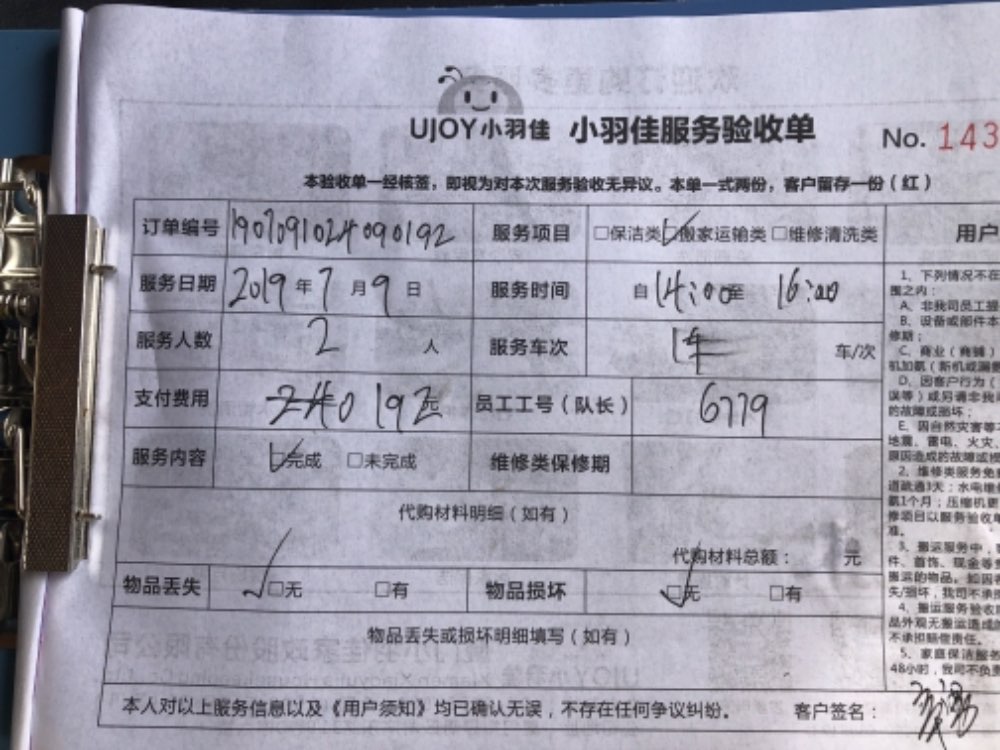 UJOY小羽佳 小羽佳服务验收单 No. 143
本验收单一经核签，即视为对本次服务验收无异议。本单一式两份，客户留存一份（红）
订单编号 1907091024090192 服务项目 □保洁类 ☑搬家运输类 □维修清洗类 用户
服务日期 2019年7月9日 服务时间 自14:00至 16:00
服务人数 2人 服务车次 1车 车/次
支付费用 240 192元 员工工号（队长） 6779
服务内容 ☑完成 □未完成 维修类保修期
代购材料明细（如有）
代购材料总额： 元
物品丢失 ☑无 □有 物品损坏 ☑无 □有
物品丢失或损坏明细填写（如有）
本人对以上服务信息以及《用户须知》均已确认无误，不存在任何争议纠纷。 客户签名：
1、下列情况不在
围之内：
A、非我司员工
B、设备或部件本
修期；
C、商业（商铺）
机加氨（新机或漏
D、因客户行为（
误等）或另请非我
的故障或损坏；
E、因自然灾害等
地震、雷电、火灾、
原因造成的故障或
2、维修类服务免
道疏通3天；水电维
氨1个月；压缩机更
修项目以服务验收单
准。
3、搬运服务中，
件、首饰、现金等
搬运的物品。如因
失/损坏，我司不承
4、搬运服务验收
品外观无搬运造成
不承担赔偿责任。
5、家庭保洁服务
48小时，我司不负责